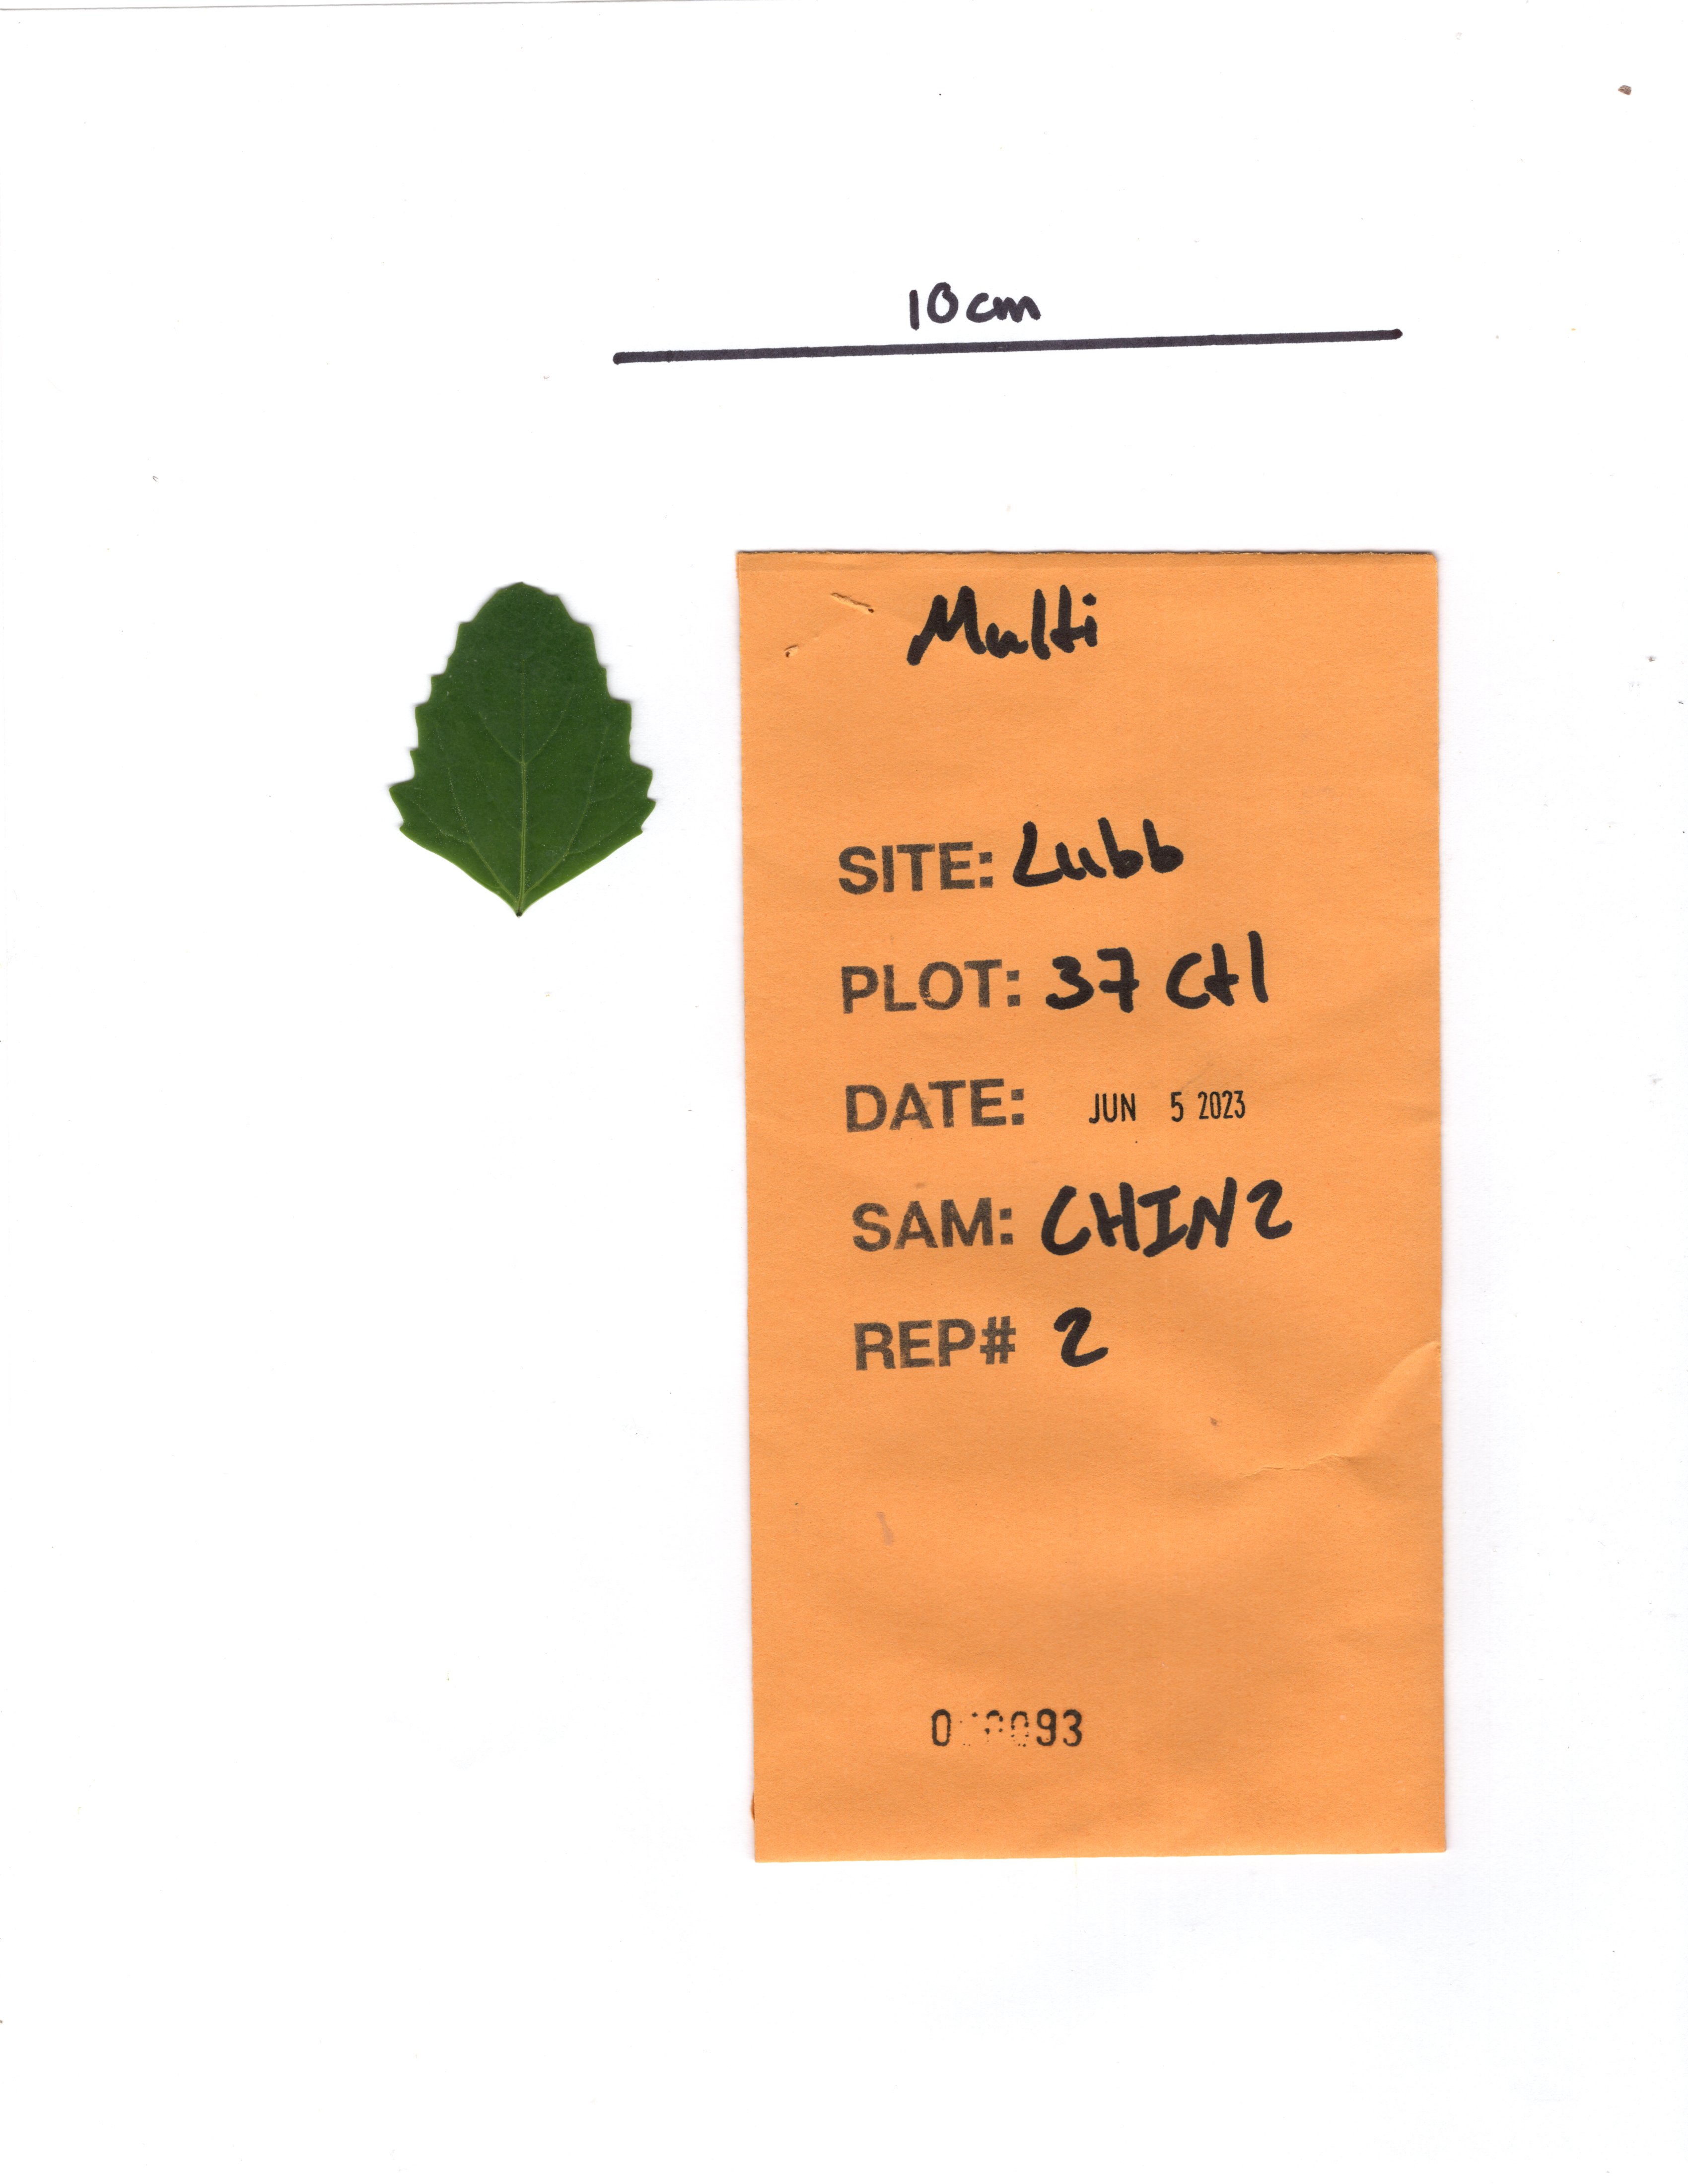 10cm
Multi
SITE: Lubb
PLOT: 37 Ctl
DATE: JUN 5 2023
SAM: CHIN2
REP# 2